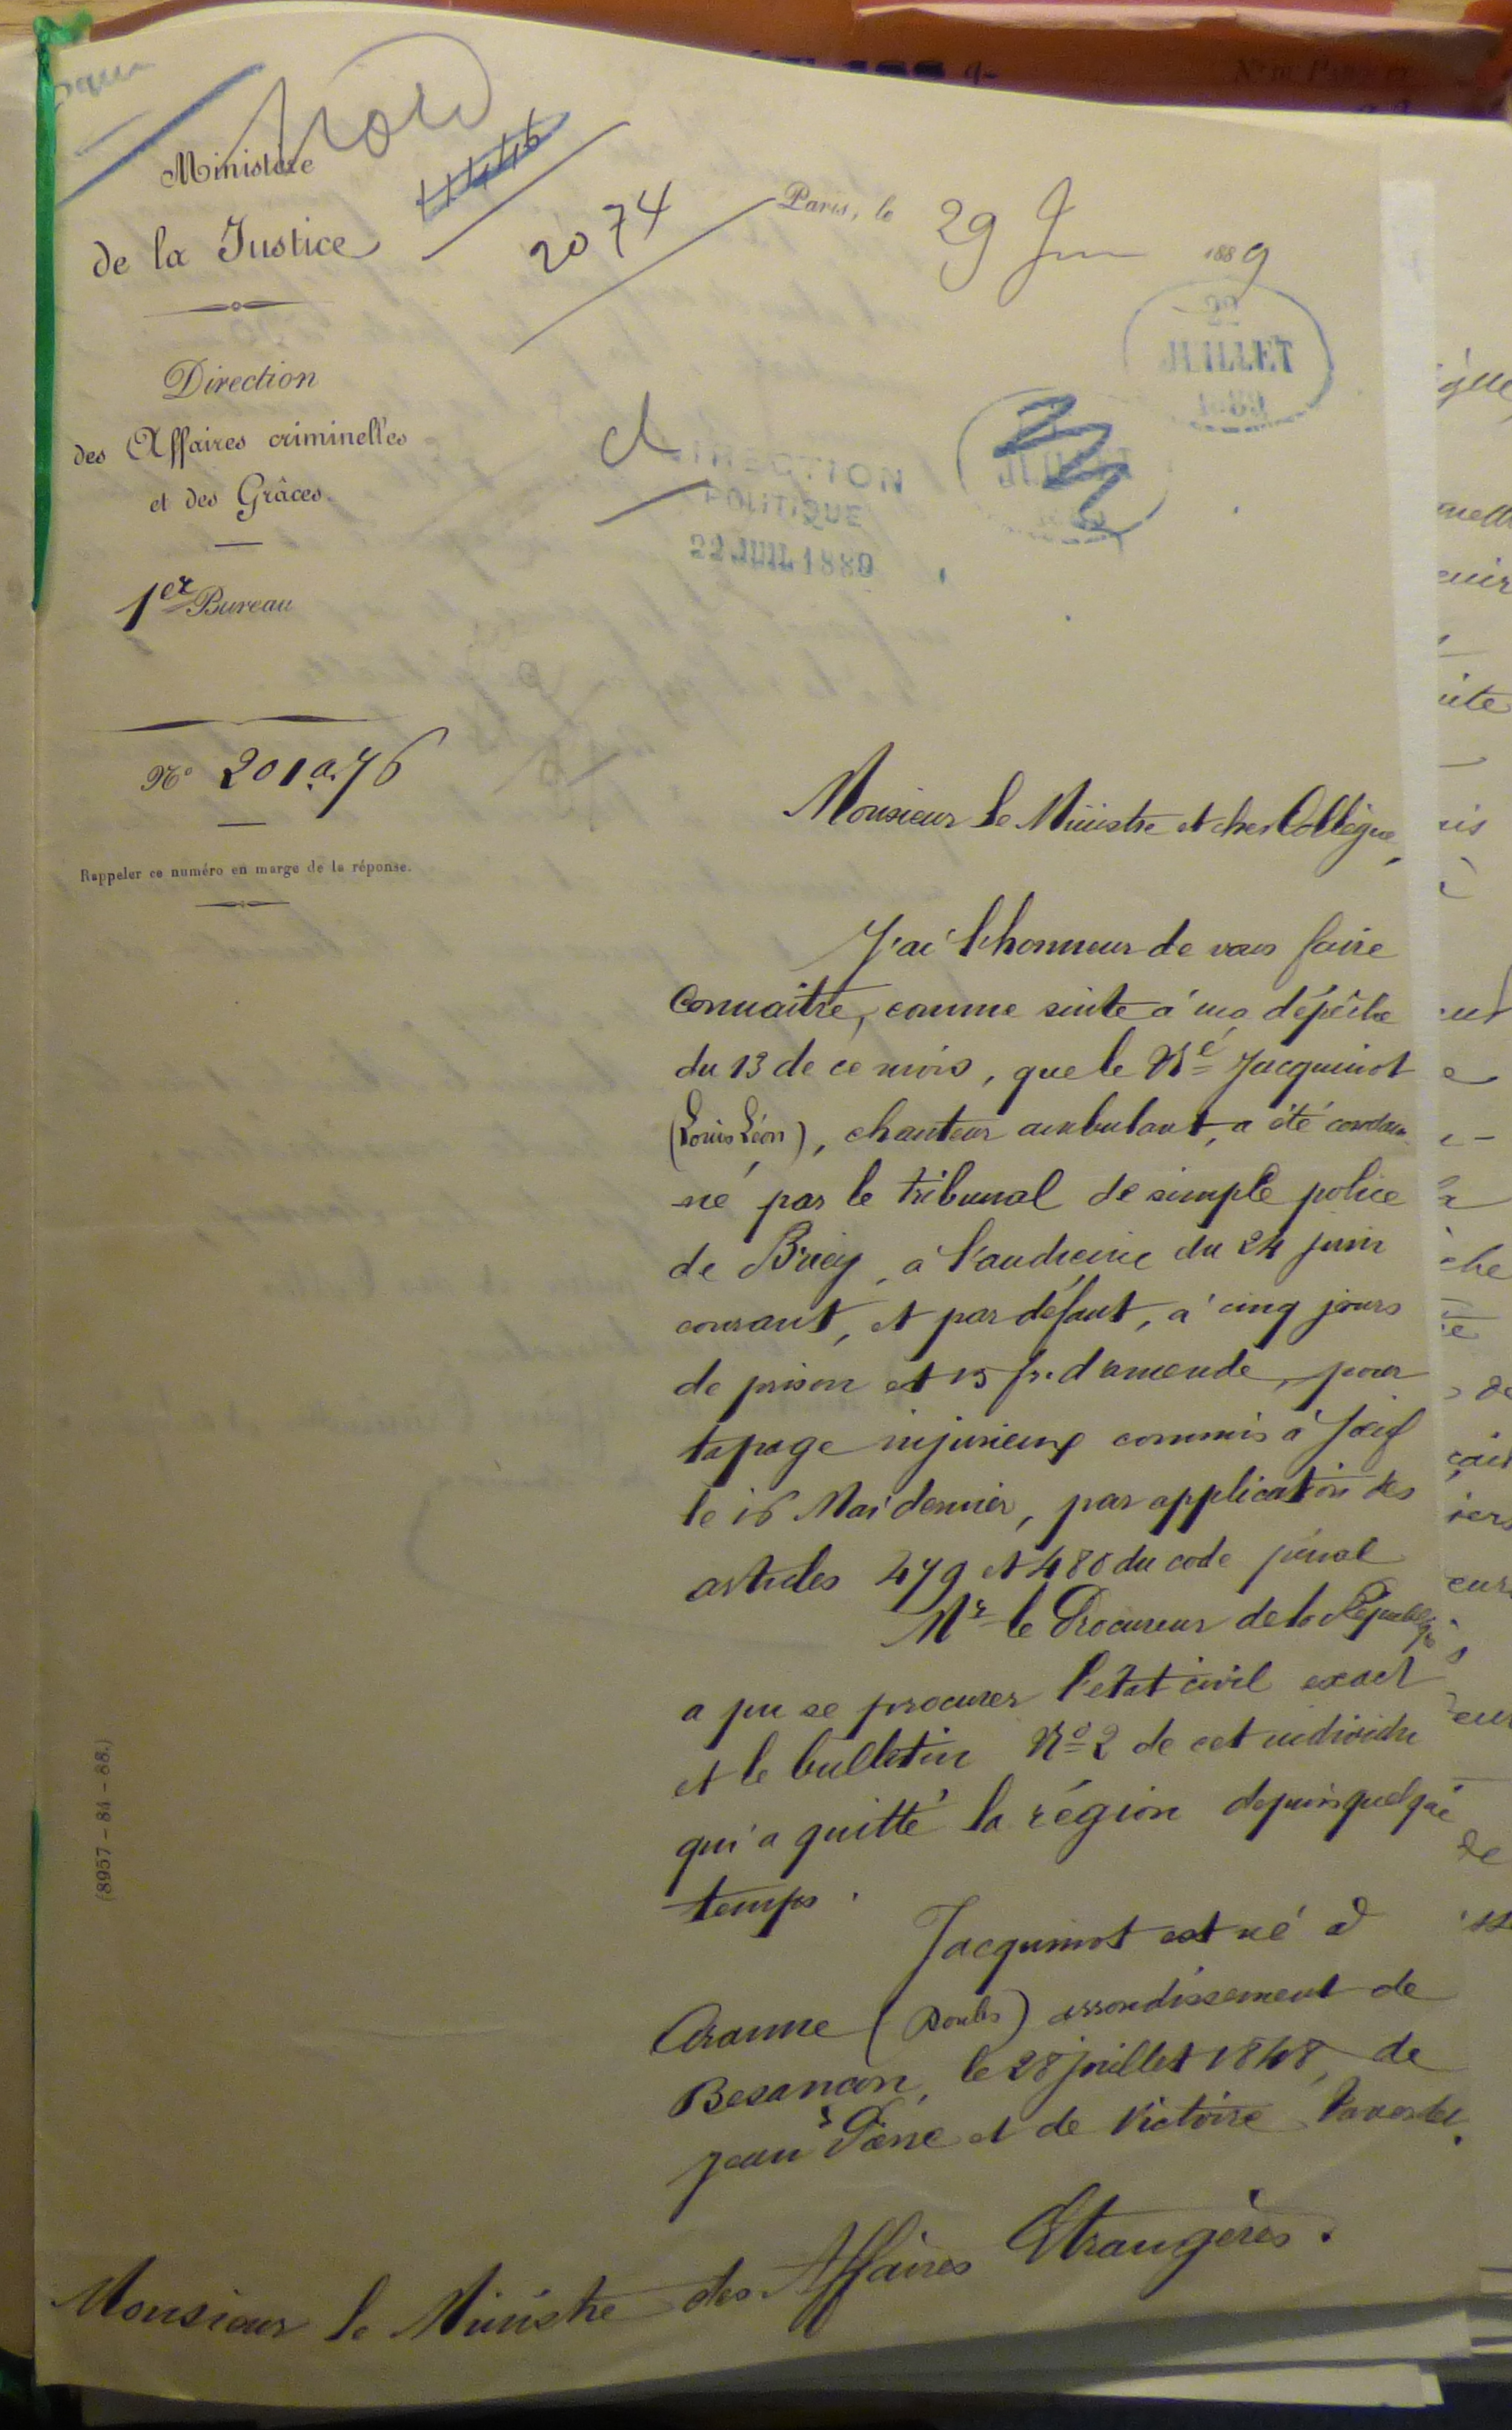 Nord
Ministère
de la Justice
11446
2074
Paris, le 29 Juin 1889
22
JUILLET
1889
Direction
des Affaires criminelles
et des Grâces.
1er Bureau
DIRECTION
POLITIQUE
22 JUIL 1889
JUILLET
No 201 a. 76
Rappeler ce numéro en marge de la réponse.
Monsieur le Ministre et cher Collègue,
J'ai l'honneur de vous faire
Connaître, comme suite à ma dépêche
du 13 de ce mois, que le Né Jacquinot
(Louis Léon), chanteur ambulant, a été condam
né par le tribunal de simple police
de Briey, à l'audience du 24 juin
courant, et par défaut, à cinq jours
de prison et 15 fr. d'amende, pour
tapage injurieux commis à Joeuf
le 16 Mai dernier, par application des
articles 479 et 480 du code pénal
Mr le Procureur de la République
a pu se procurer l'état civil exact
et le bulletin No 2 de cet individu
qui a quitté la région depuis quelque
temps.
Jacquinot est né à
(Doubs) arrondissement de
Besançon, le 28 juillet 1848, de
Jean Pierre et de Victoire
Monsieur le Ministre des Affaires Etrangères.
(8957-84-88.)